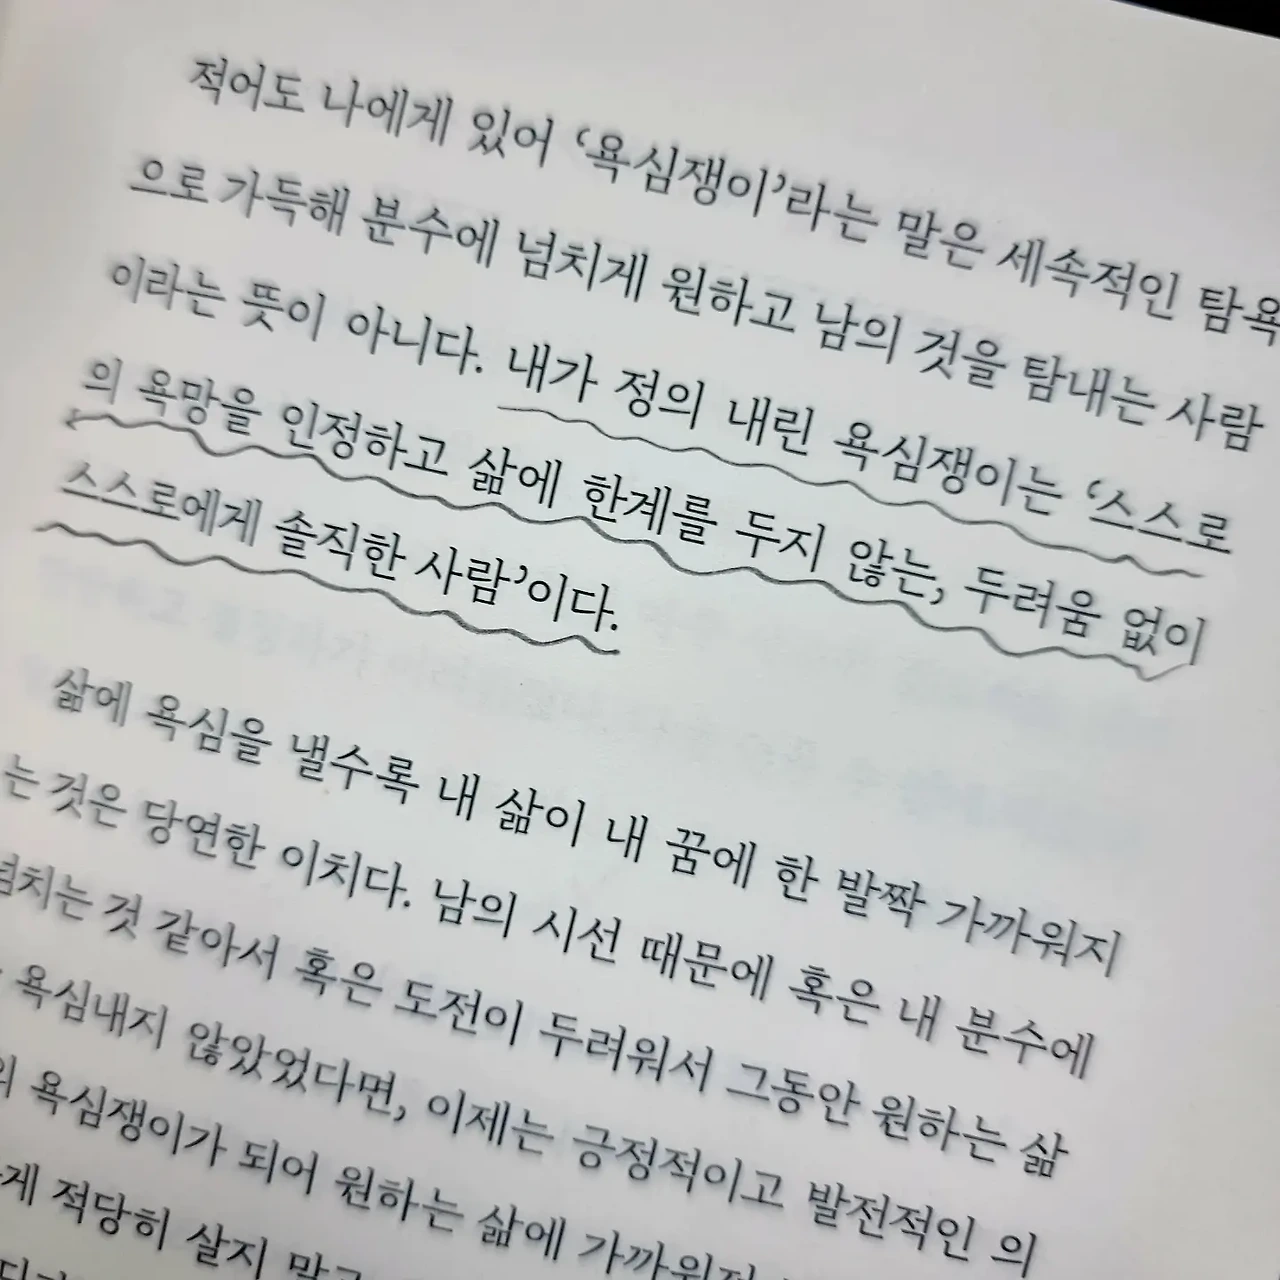 적어도 나에게 있어 ‘욕심쟁이’라는 말은 세속적인 탐욕
으로 가득해 분수에 넘치게 원하고 남의 것을 탐내는 사람
이라는 뜻이 아니다. 내가 정의 내린 욕심쟁이는 ‘스스로
의 욕망을 인정하고 삶에 한계를 두지 않는, 두려움 없이
스스로에게 솔직한 사람’이다.
삶에 욕심을 낼수록 내 삶이 내 꿈에 한 발짝 가까워지
는 것은 당연한 이치다. 남의 시선 때문에 혹은 내 분수에
넘치는 것 같아서 혹은 도전이 두려워서 그동안 원하는 삶
욕심내지 않았었다면, 이제는 긍정적이고 발전적인 의
욕심쟁이가 되어 원하는 삶에
적당히 살지